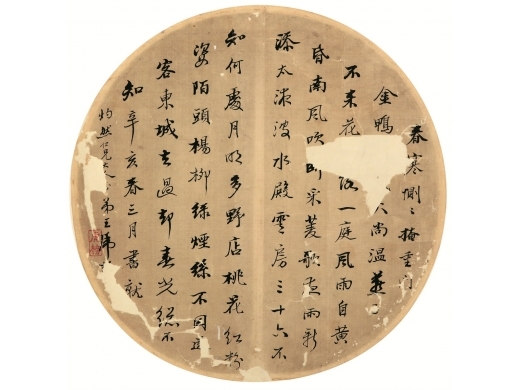 春寒惻〻掩重门
金鴨尚温燕
不来花一庭風雨自黄
昏南風吹断采菱歌夜雨新
添太液波水殿雲房三十六不
知何處月明多野店桃花紅粉
姿陌頭楊柳綠煙絲不因送
客東城去過却春光總不
知 辛亥春三月書就
灼然仁兄大人 弟王